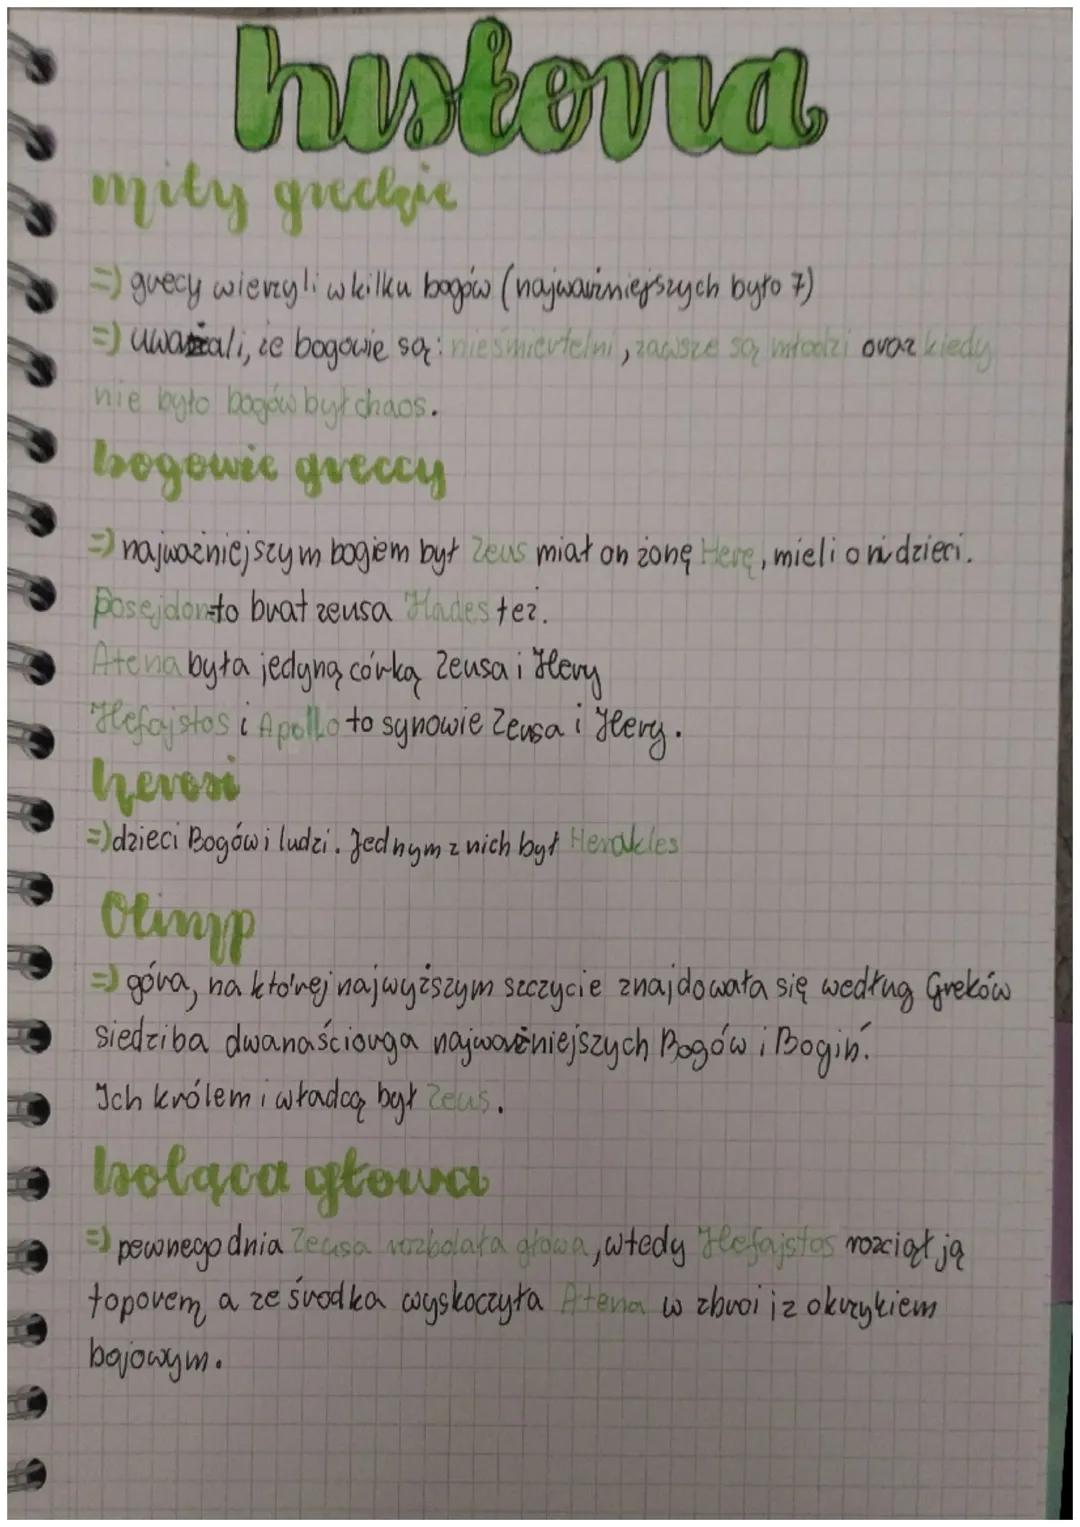 historia
mity greckie
=) grecy wierzyli w kilku bogów (najważniejszych było 7)
=) uważali, że bogowie są: nieśmiertelni, zawsze są młodzi oraz kiedy
nie było bogów był chaos.
bogowie greccy
=) najważniejszym bogiem był Zeus miał on żonę Herę, mieli oni dzieci.
Posejdon to brat zeusa Hades też.
Atena była jedyną córką Zeusa i Hery
Hefajstos i Apollo to synowie Zeusa i Hery.
herosi
=) dzieci Bogów i ludzi. Jednym z nich był Herakles
Olimp
=) góra, na której najwyższym szczycie znajdowała się według Greków
siedziba dwanaściorga najważniejszych Bogów i Bogiń.
Ich królem i władcą był Zeus.
boląca głowa
=) pewnego dnia Zeusa rozbolała głowa, wtedy Hefajstos rozciął ją
toporem, a ze środka wyskoczyła Atena w zbroi i z okrzykiem
bojowym.